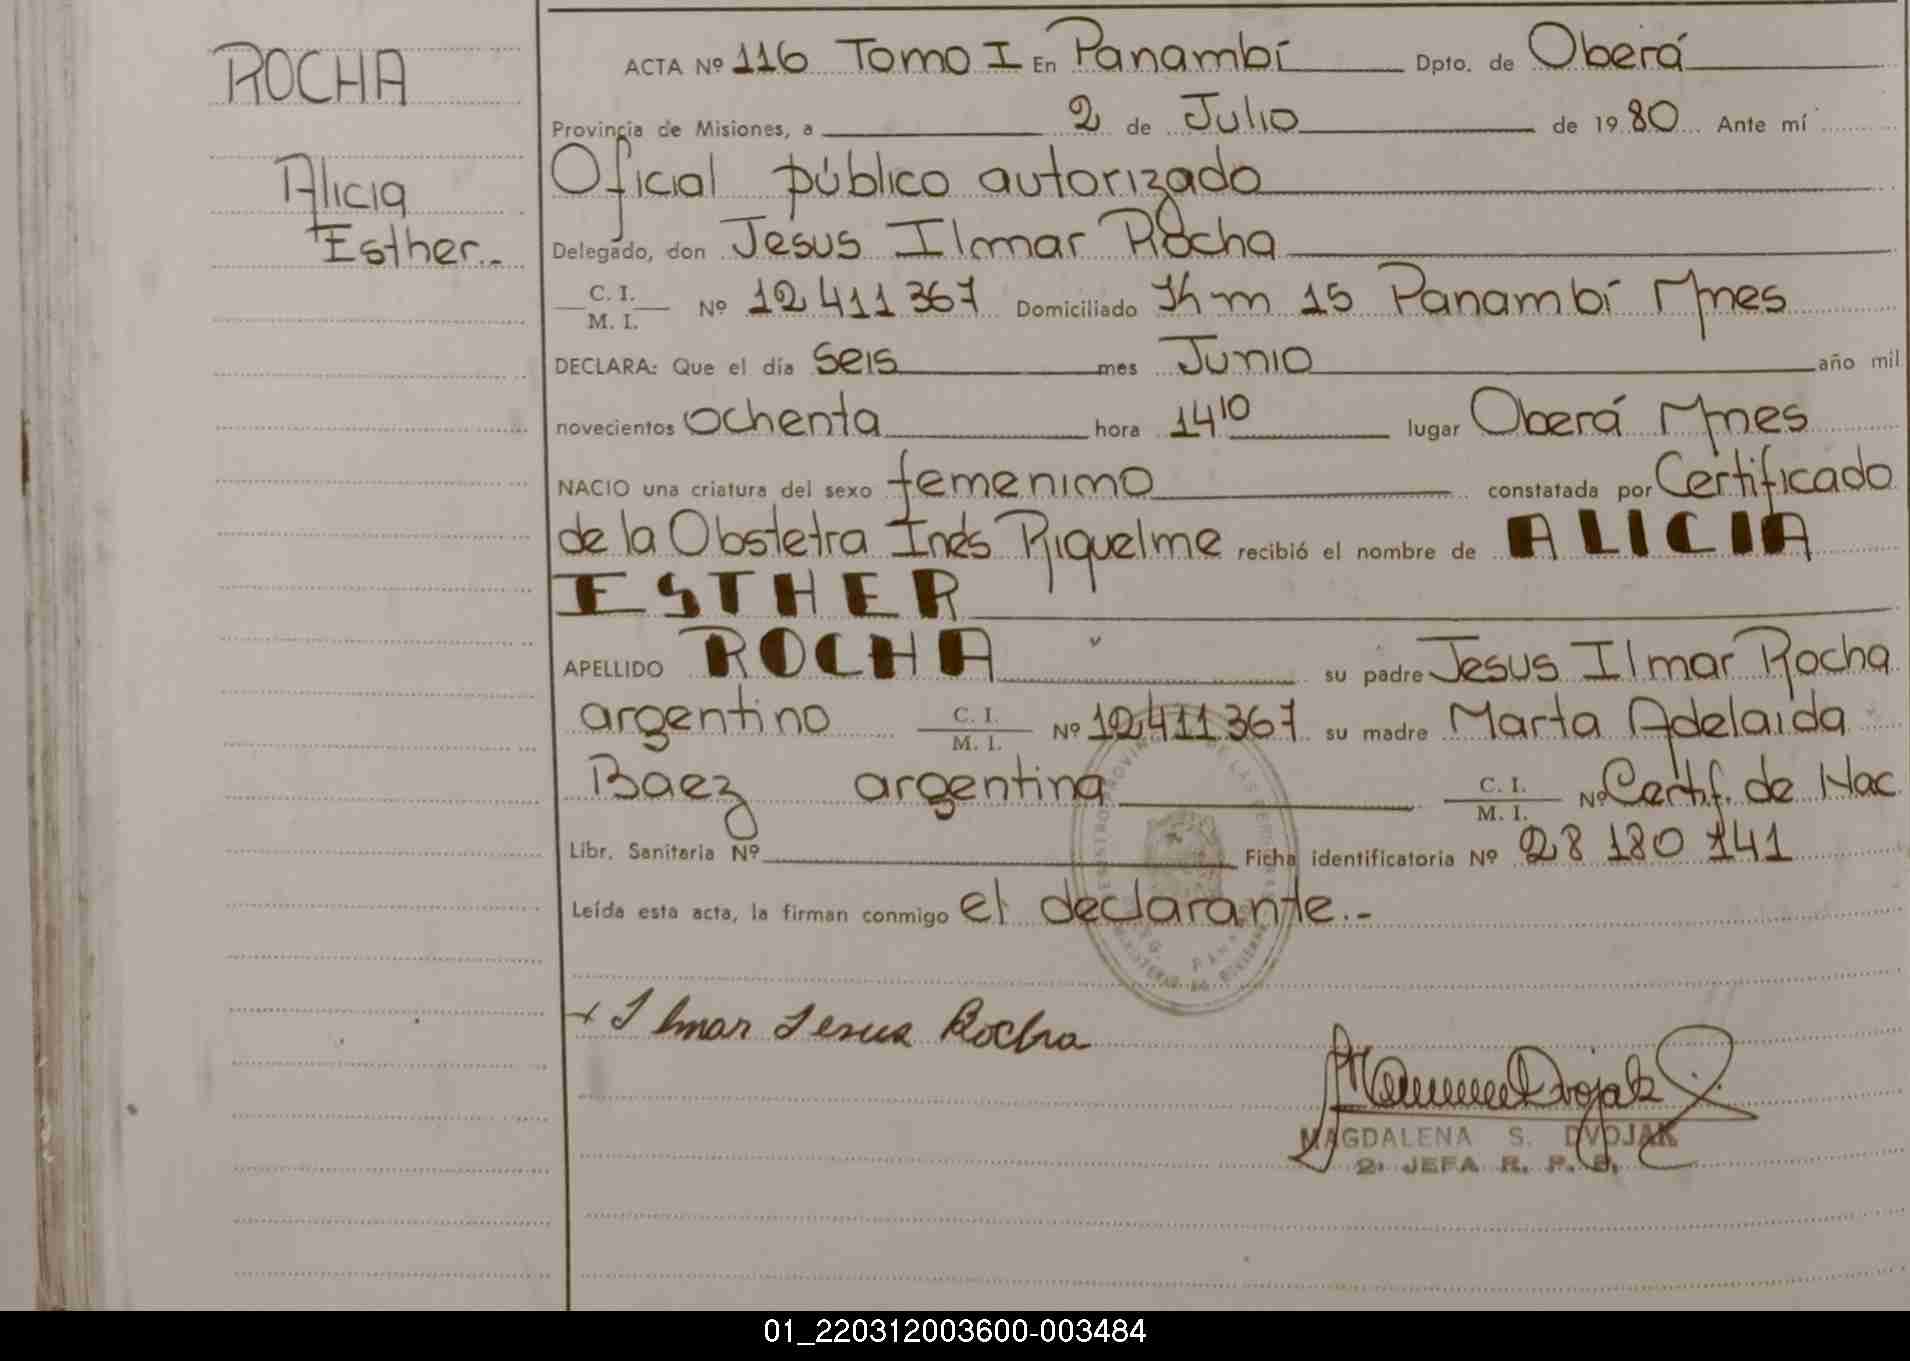 ROCHA
Alicia
Esther.-
ACTA Nº 116 Tomo I En Panambí Dpto. de Oberá
Provincia de Misiones, a 2 de Julio de 1980 Ante mí
Oficial público autorizado
Delegado, don Jesus Ilmar Rocha
C. I.
M. I.
Nº 12 411 367 Domiciliado Km 15 Panambí Mnes
DECLARA: Que el día seis mes Junio año mil
novecientos ochenta hora 14 10 lugar Oberá Mnes
NACIO una criatura del sexo femenino constatada por Certificado
de la Obstetra Inés Riquelme recibió el nombre de ALICIA
ESTHER
APELLIDO ROCHA su padre Jesus Ilmar Rocha
argentino C. I. M. I. Nº 12.411.367 su madre Marta Adelaida
Baez argentina C. I. M. I. Nº Certif. de Nac
Libr. Sanitaria Nº Ficha identificatoria Nº 28 180 141
Leída esta acta, la firman conmigo el declarante.-
+ Ilmar Jesus Rocha
MAGDALENA S. DVOJAK
2º JEFA R. P. P.
01_220312003600-003484